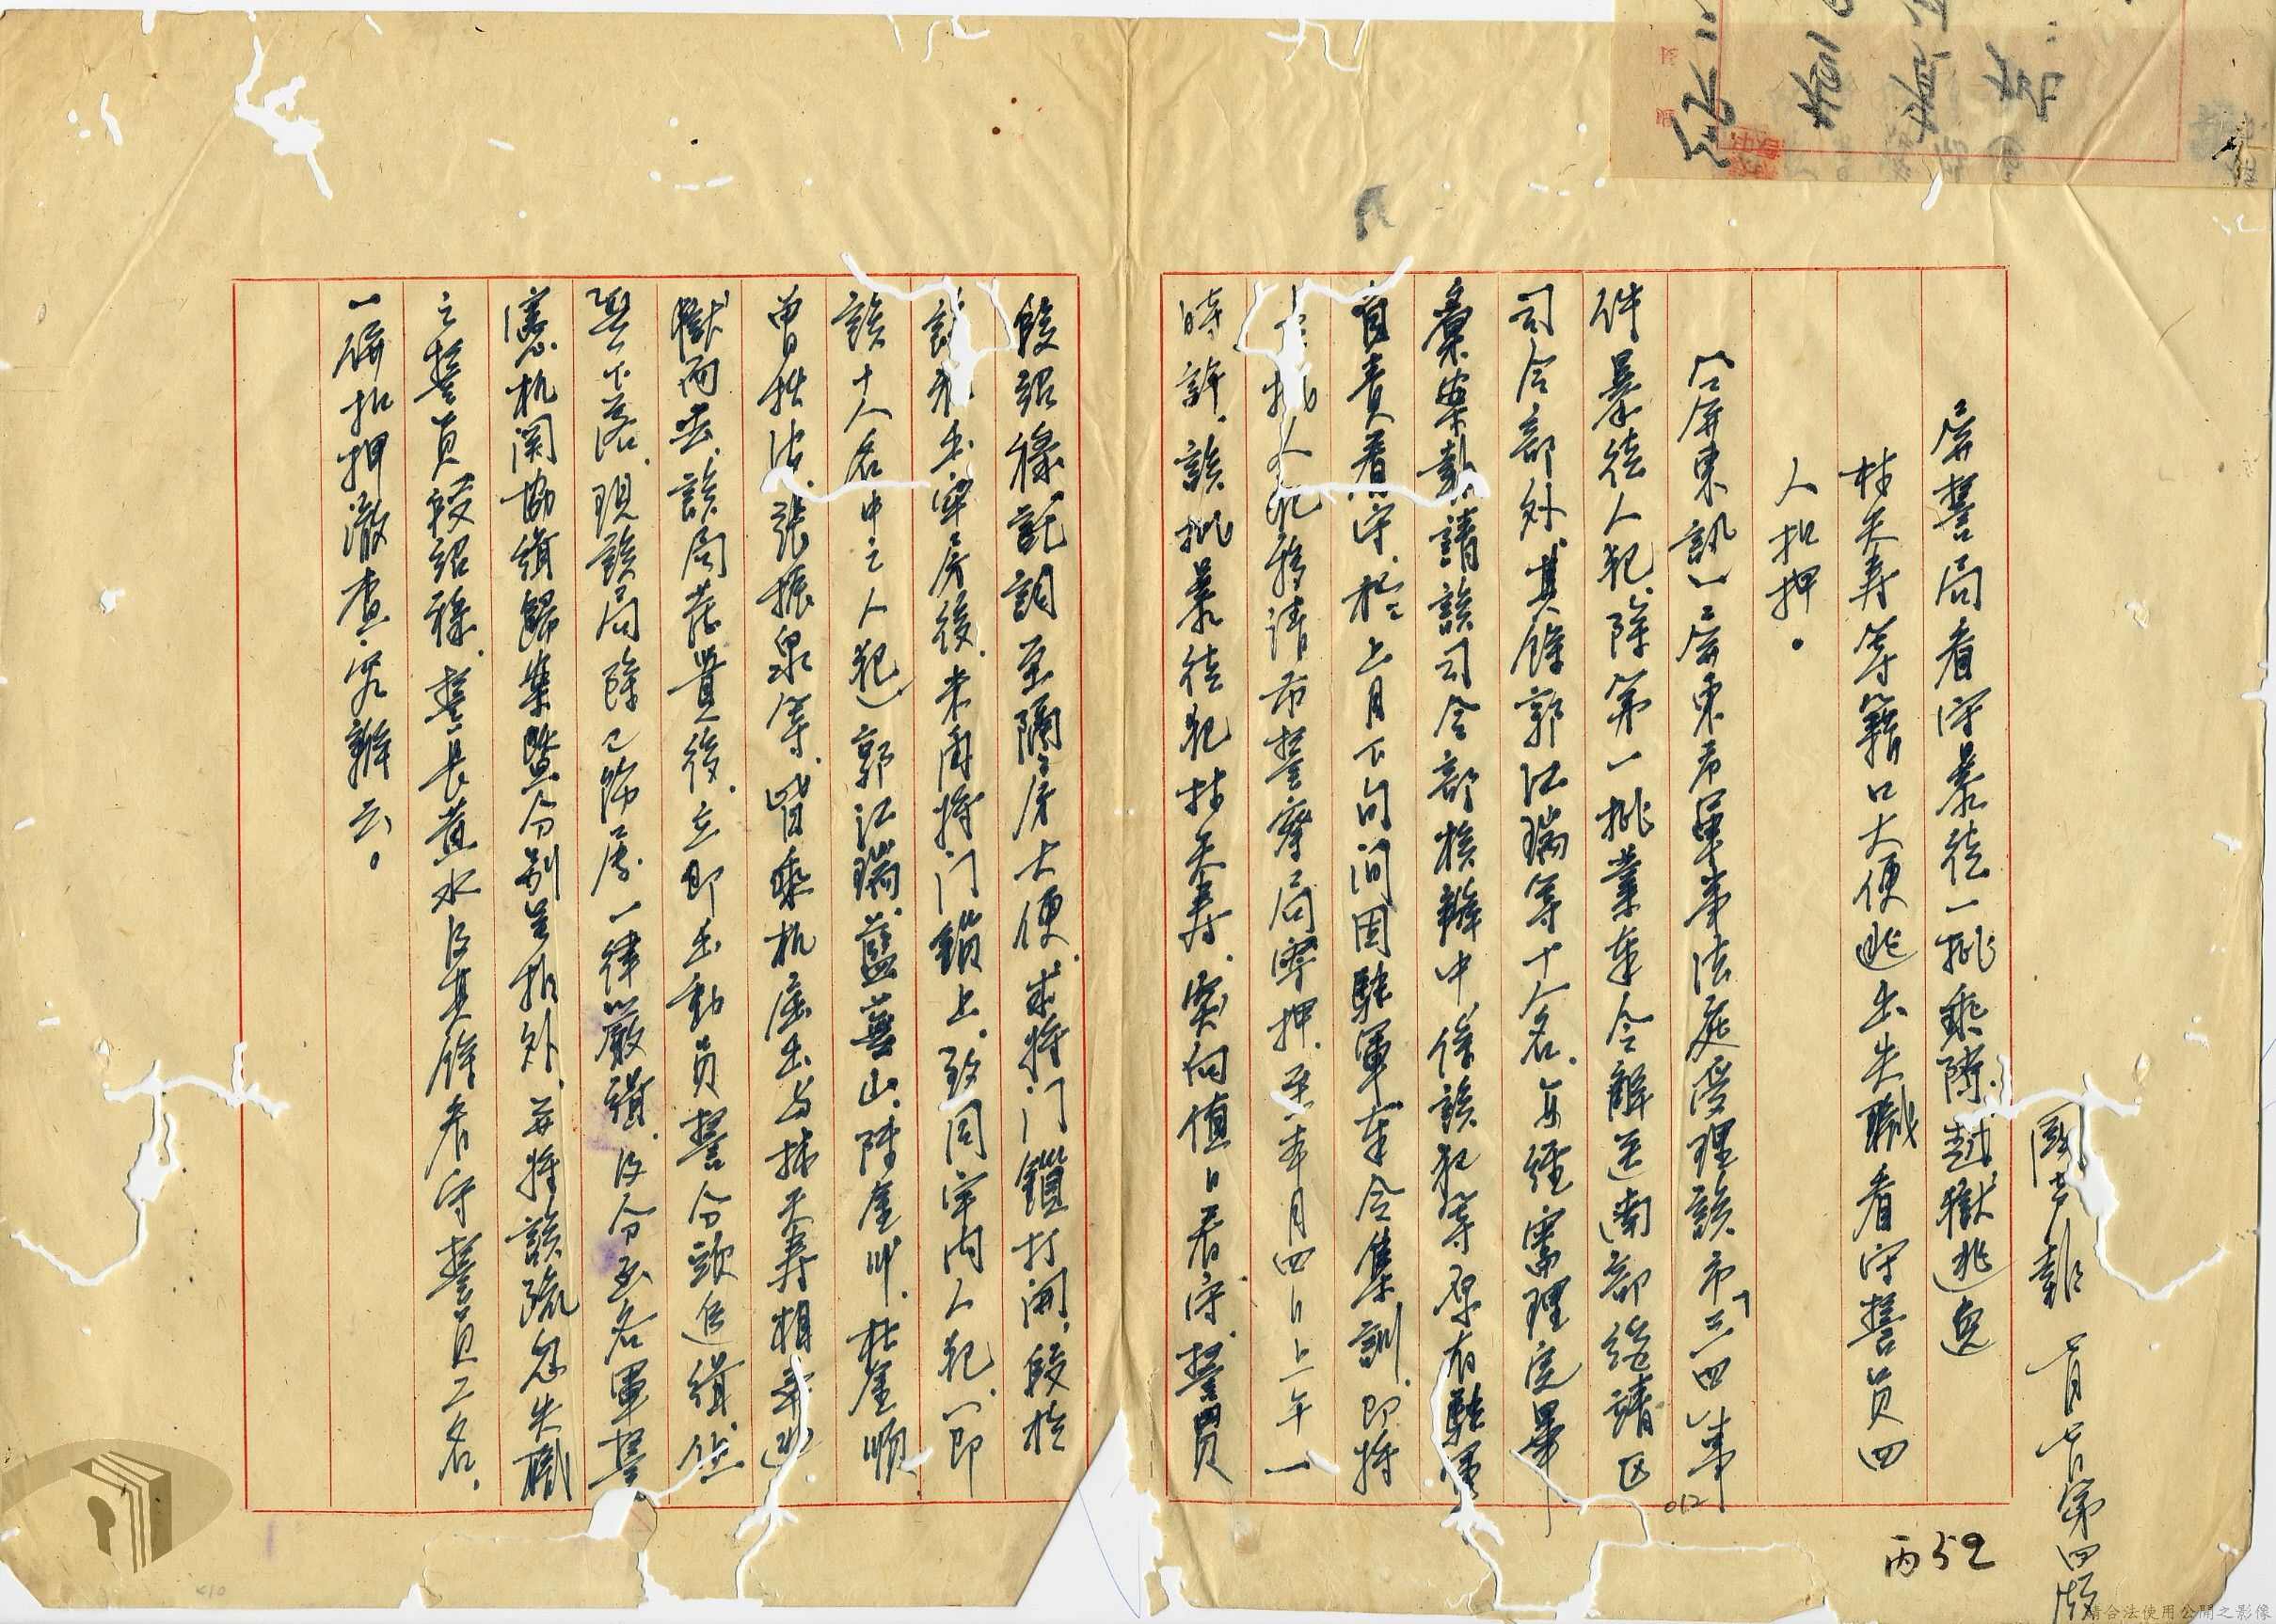 國聲報 一月七日第四版
屏警局看守暴徒一批乘隙越獄逃逸
林天壽等籍口大便逃出失職看守警員四
人扣押。
〔屏東訊〕屏東市軍事法庭受理該市「三四」事
件暴徒人犯、除第一批業奉令解送南部綏靖区
司令部外、其餘郭江瑞等十人名、亦經審理完畢
彙案勘請該司令部核辦中、係該犯等原有駐軍
負責看守、於上月下旬間因駐軍奉令集訓、即將
批人犯移請市警察局寄押、至本月四日上午一
時許、該批暴徒犯林天壽、突向值日看守、警員
段紹祿託詞至隔房大便、求將门鎖打開、段於
犯出牢房後、未再將门鎖上、致同牢內人犯、即
該十人名中之人犯郭江瑞、藍莫山、陳金川、杜金順
曾拱法、張振泉等、皆乘机産出与林天壽相率逃
獄而去、該局茫覺後、立即出動員警分頭追緝、但
無下落、現該局除已飭屬一律嚴緝、及分函各軍警
憲机関協緝歸案暨分別呈报外、并將該疏忽失職
之警員段紹祿、警長黃水及其餘看守警員二名、
一併扣押澈查究辦云。
012
丙52
請合法使用公開之影像